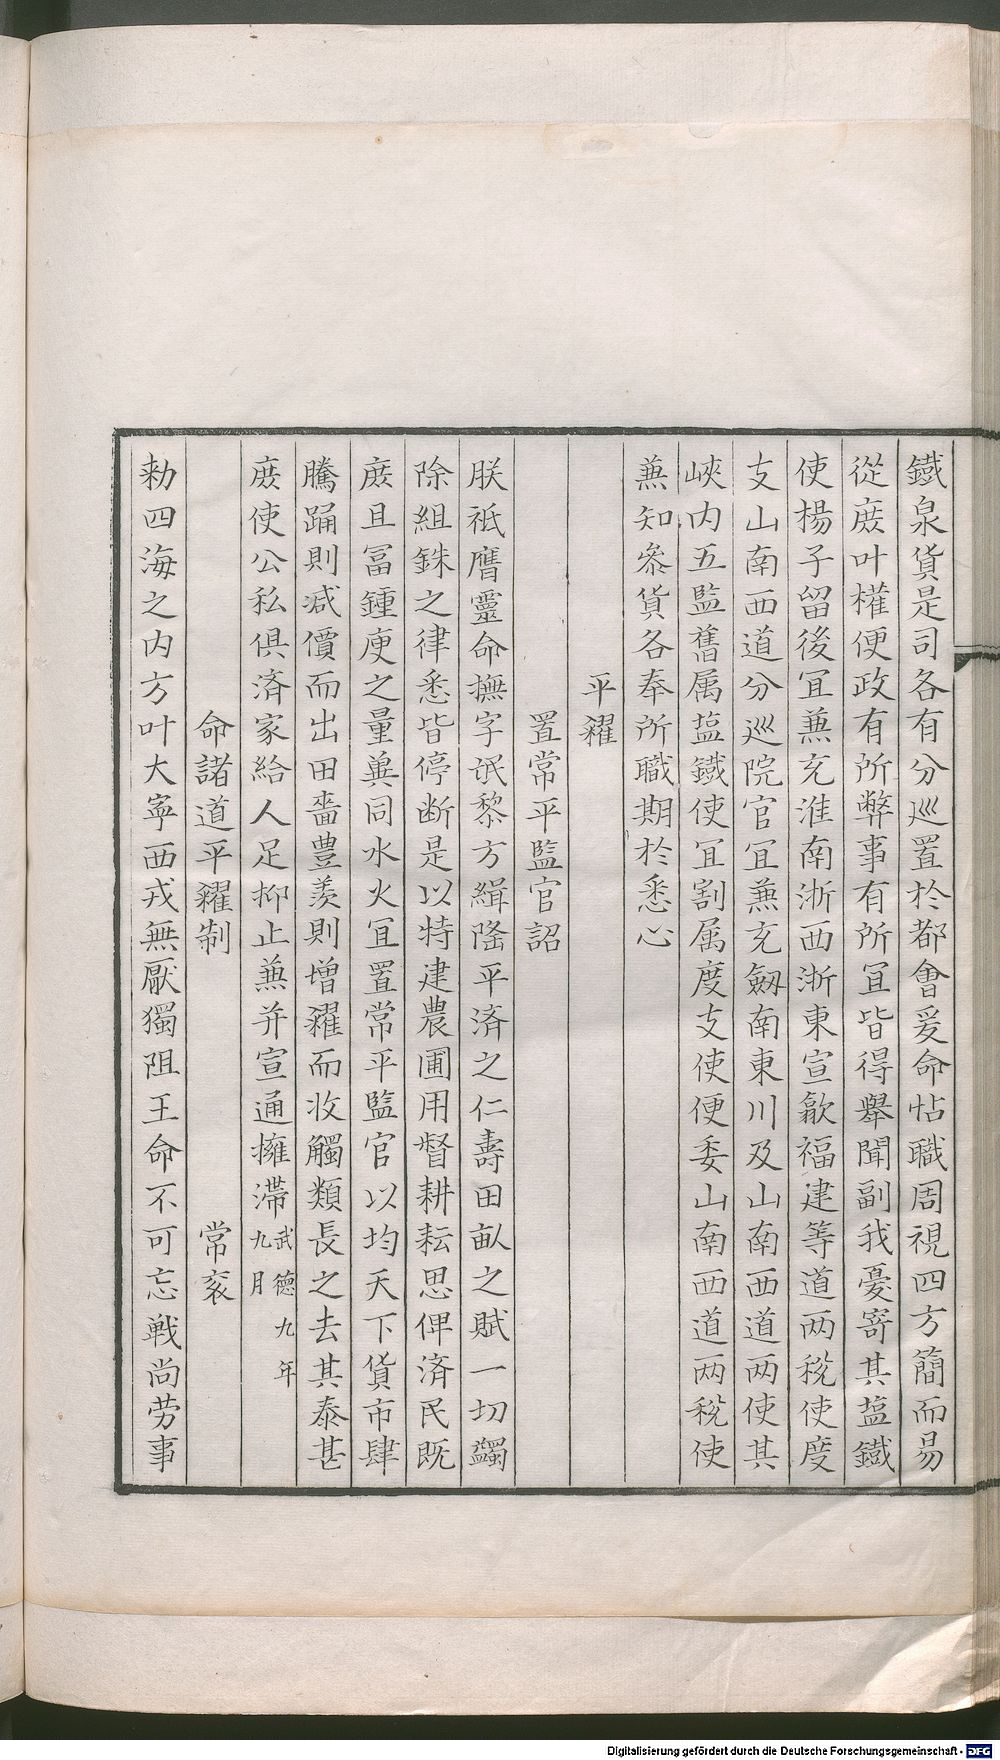 鐵泉貨是司各有分巡置於都會爰命帖職周視四方簡而易
從庶叶權便政有所弊事有所冝皆得舉聞副我憂寄其塩鐵
使楊子留後冝兼充淮南浙西浙東宣歙福建等道两税使度
支山南西道分巡院官冝兼充劒南東川及山南西道两使其
峽内五監舊属塩鐵使冝割属度支使便委山南西道两税使
兼知糸貨各奉所職期於悉心
平糴
置常平監官詔
朕祗膺靈命撫字氓黎方緝隆平済之仁壽田畝之賦一切蠲
除組銖之律悉皆停断是以特建農圃用督耕耘思俾済民既
庶且冨鍾庾之量兾同水火冝置常平監官以均天下貨市肆
騰踊則减價而出田嗇豊羨則增糴而收觸類長之去其泰甚
庶使公私俱済家給人足抑止兼并宣通擁滯武德九年九月
命諸道平糴制 常衮
勑四海之内方叶大寧西戎無厭獨阻王命不可忘戦尚劳事
Digitalisierung gefördert durch die Deutsche Forschungsgemeinschaft - DFG